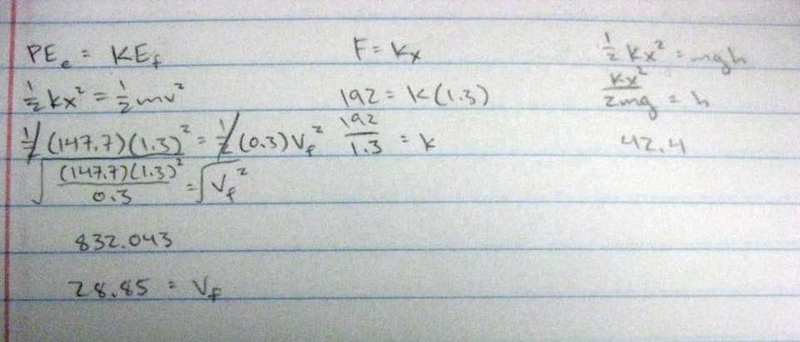 PEe = KEf
½kx² = ½mv²
½(147.7)(1.3)² = ½(0.3)Vf²
√(147.7)(1.3)²/0.3 = √Vf²
832.043
28.85 = Vf
F = kx
192 = k(1.3)
192/1.3 = k
½kx² = mgh
kx²/2mg = h
42.4